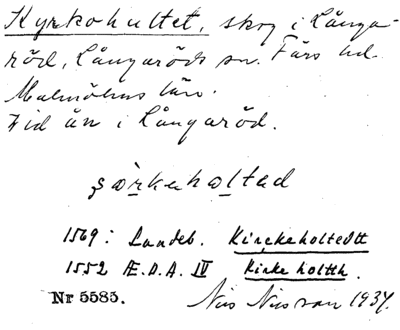 Kyrkohultet, skog i Långa-
röd, Långaröds sn. Färs hd.
Malmöhus län.
Vid ån i Långaröd.
şạrkehaltad
1569: Landeb. Kirckeholtedtt
1552 Æ.D.A. IV Kirke holtth.
Nr 5585. Nils Nilsson 1937.